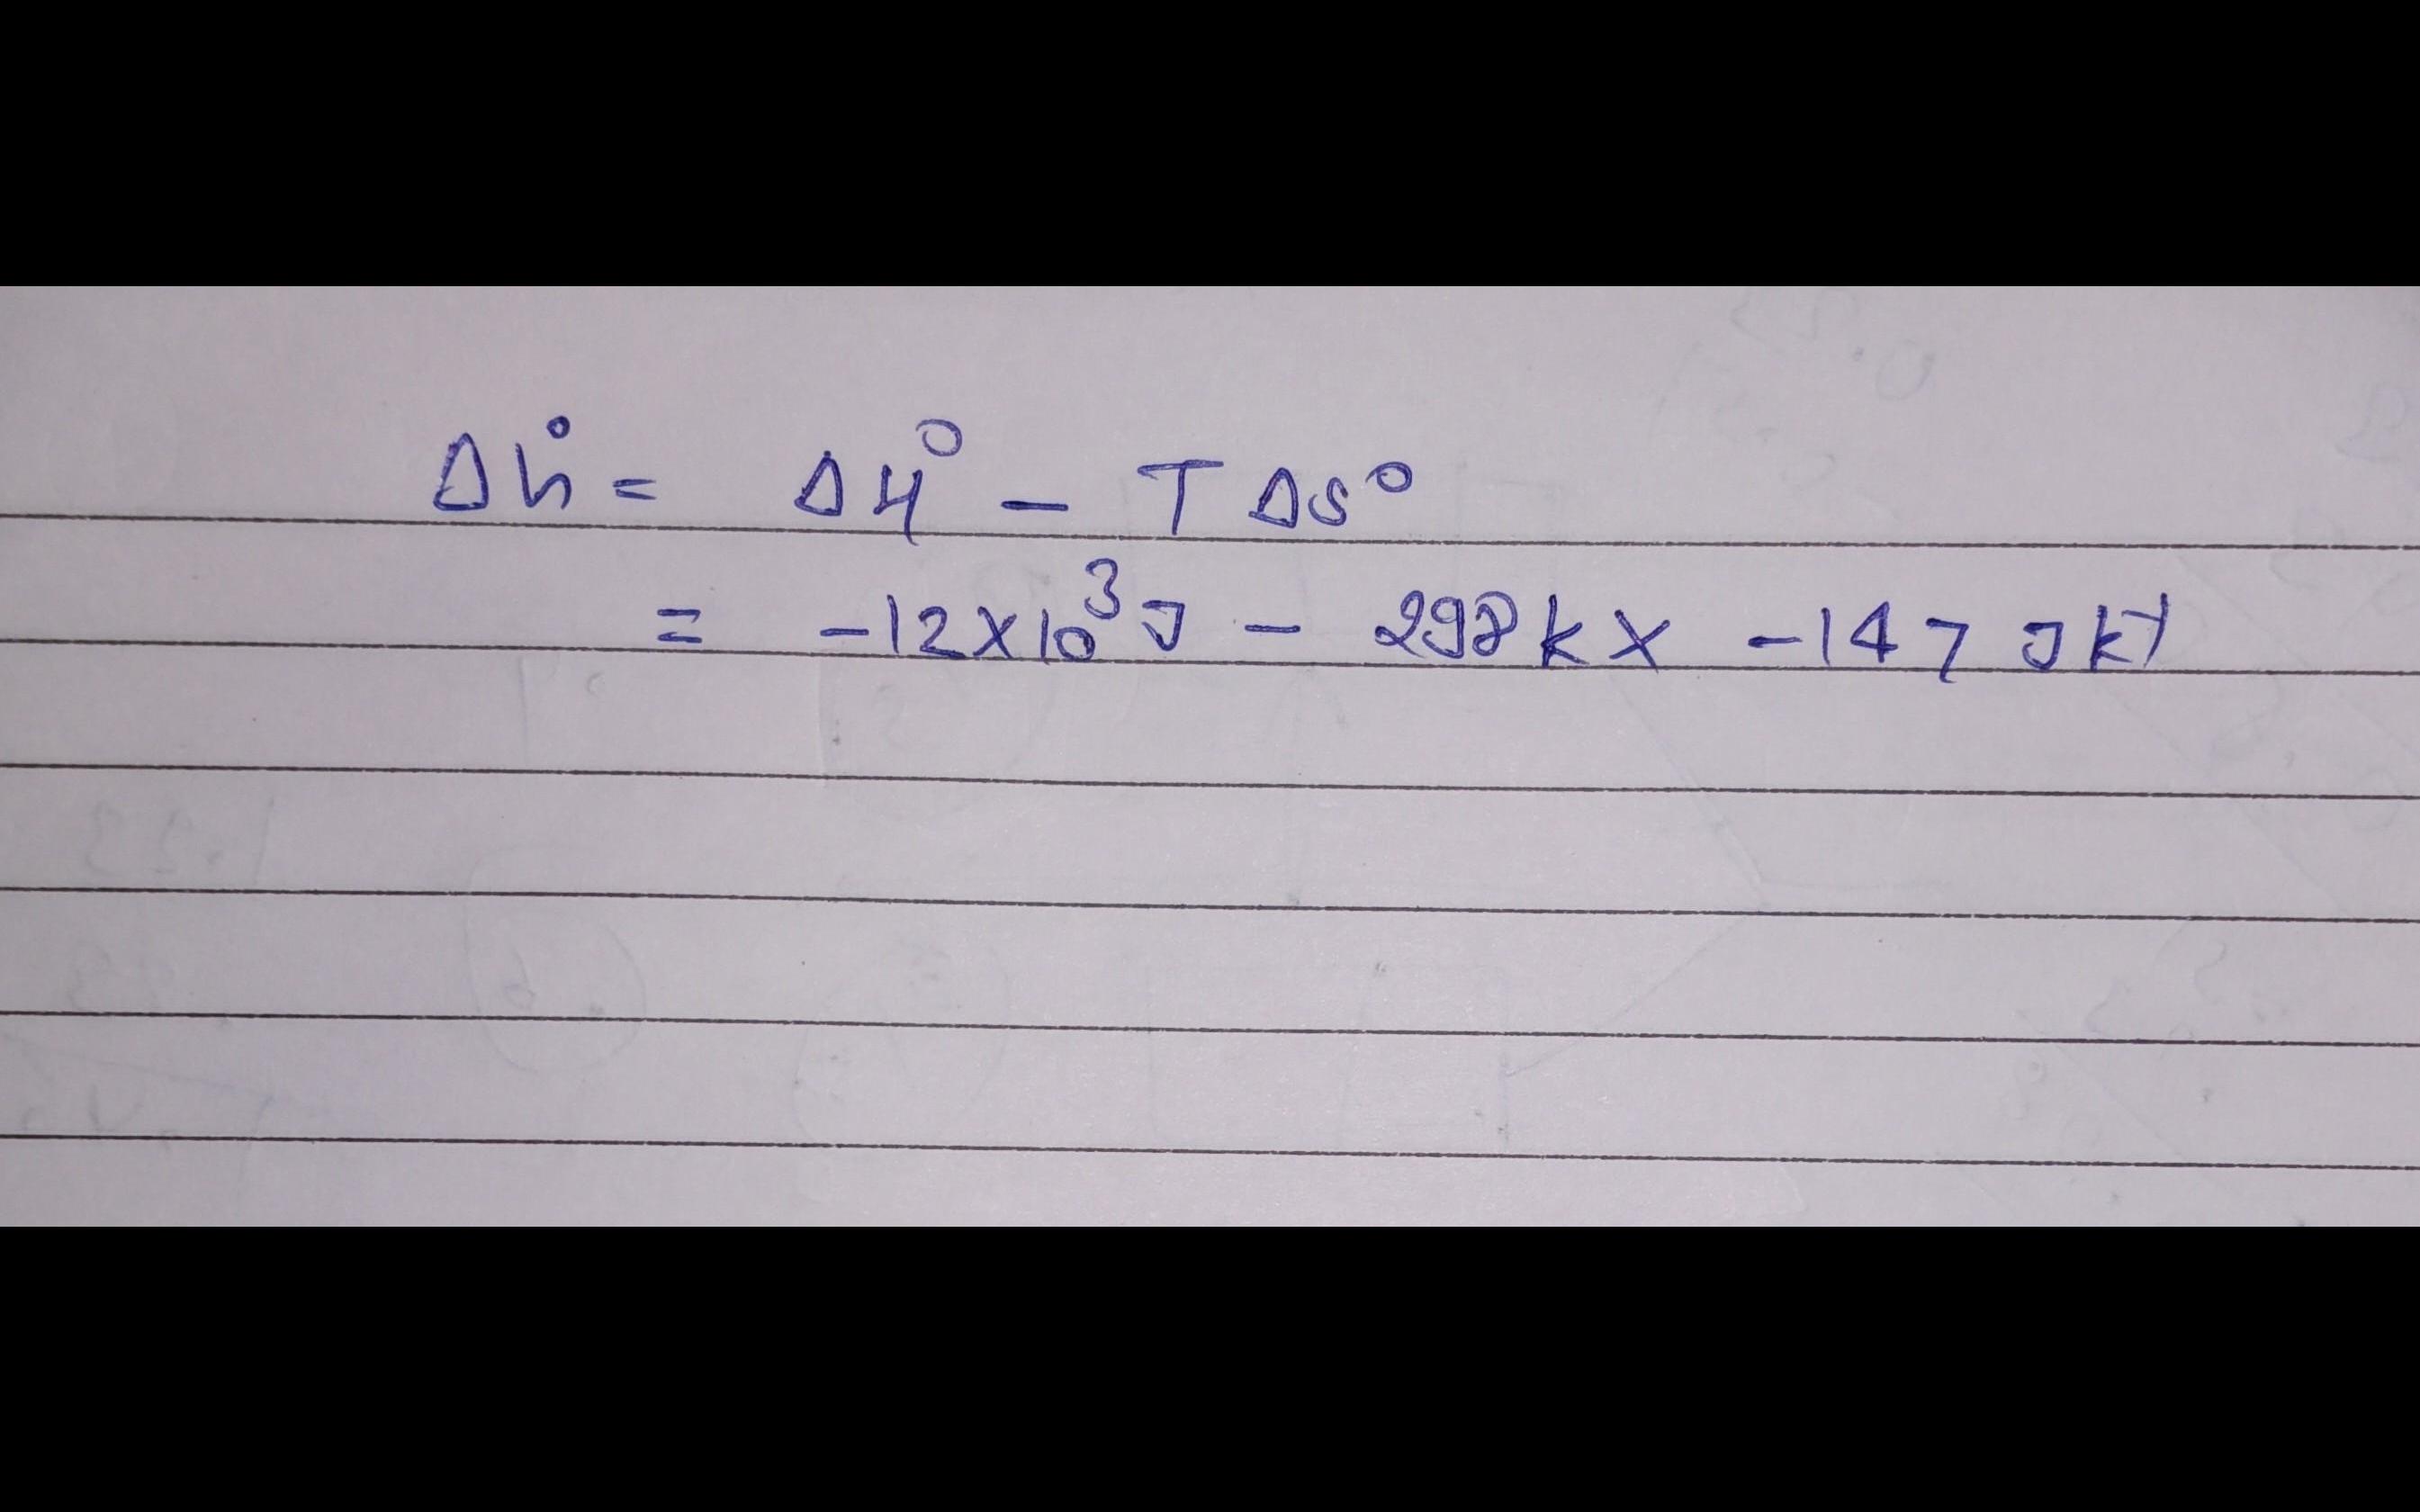 ΔG° = ΔH° - TΔS°
= -12×10³J - 298K × -147 JK⁻¹